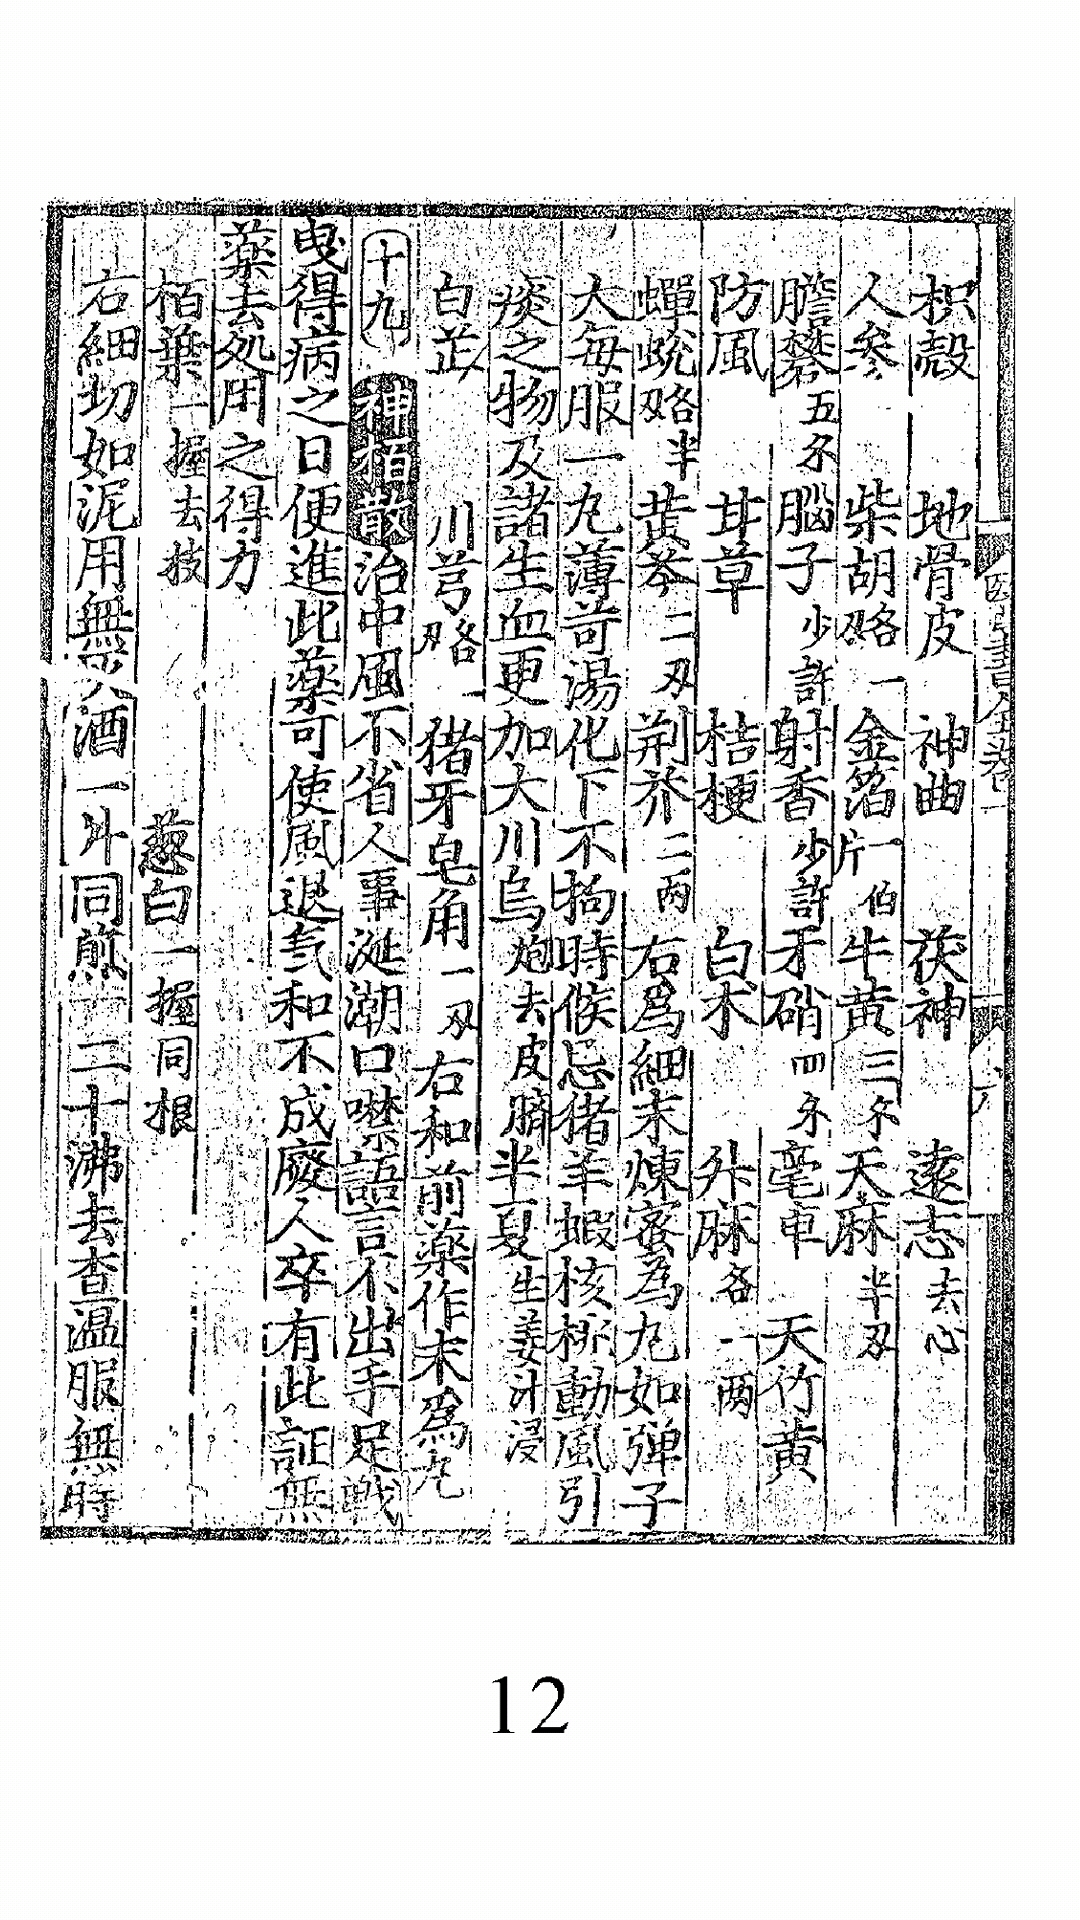 枳殼 地骨皮 神曲 茯神 遠志去心
人參 柴胡各一刄 金箔一伯片 牛黄三分 天麻半刄
膽礬五分 腦子少許 射香少許 牙硝四分 亳車 天竹黄
防風 甘草 桔梗 白木 升麻各一两
蟬蛻略半 黄芩二刄 荆芥二两 右爲細末煉蜜為丸如弾子
大每服一丸薄苛湯化下不拘時候忌猪羊蝦核桃動風引
痰之物及諸生血更加大川烏炮去皮臍半夏生姜汁浸
白芷 川芎各一刄 猪牙皂角一刄 右和前薬作末爲丸
十九 神栢散 治中風不省人事涎潮口噤語言不出手足戰
曳得病之日便進此藥可使風退氣和不成廢人卒有此証無
藥去処用之得力
栢葉一握去技 葱白一握同根
右細切如泥用無灰酒一升同煎一二十沸去查温服無時
12